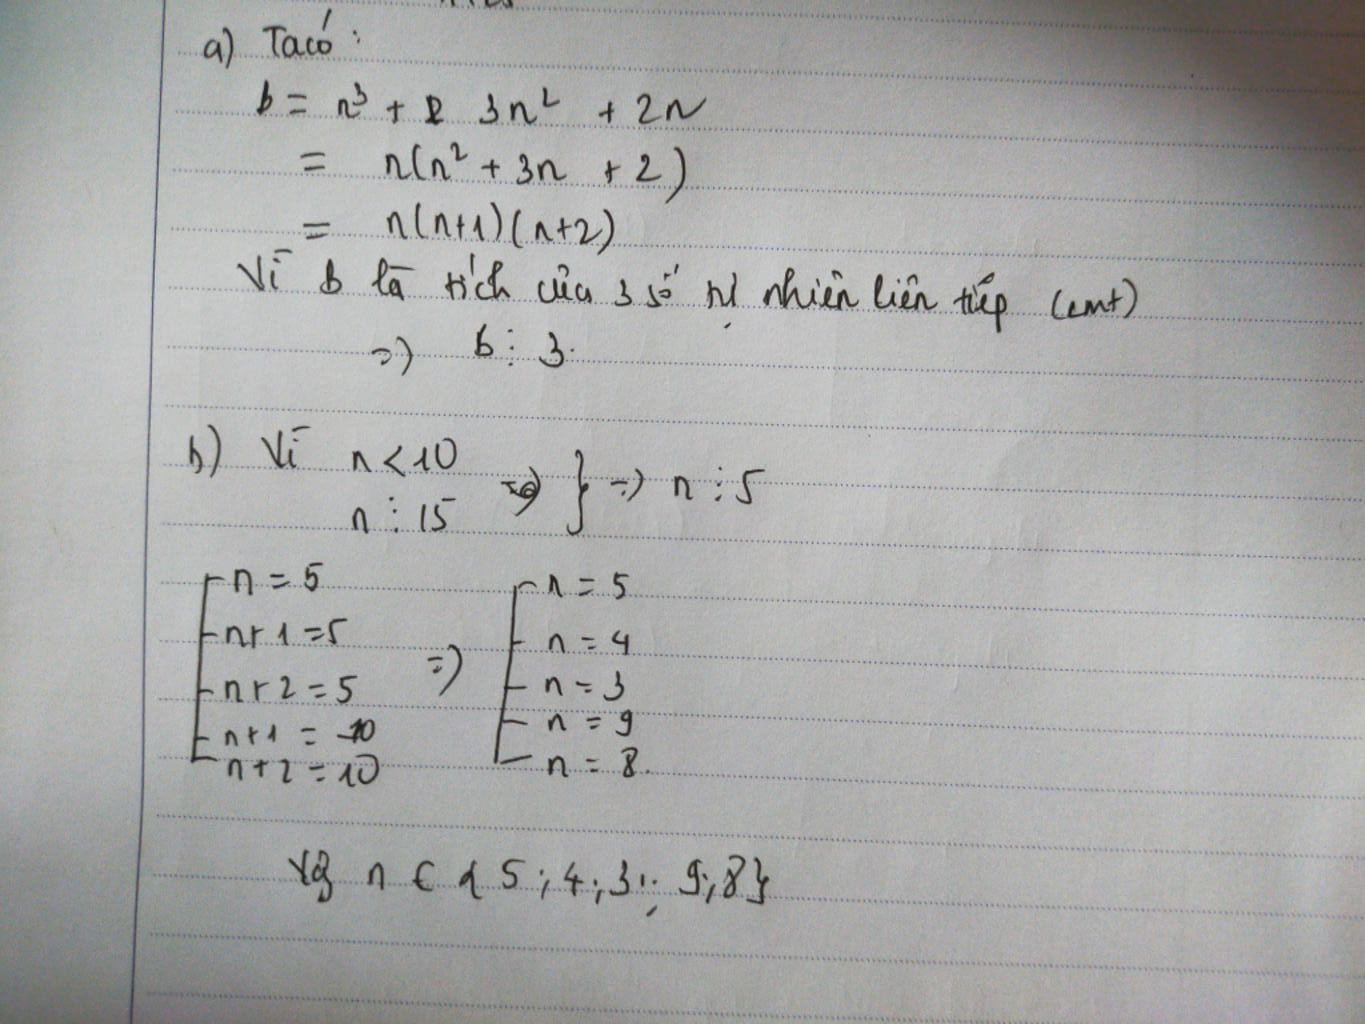 a) Ta có:
b = n³ + 3n² + 2n
= n(n² + 3n + 2)
= n(n+1)(n+2)
Vì b là tích của 3 số tự nhiên liên tiếp (cmt)
=> b ⋮ 3.
b) Vì n < 10
n ⋮ 15 } => n ⋮ 5
n = 5
n+1 = 5
n+2 = 5
n+1 = 10
n+2 = 10
=>
n = 5
n = 4
n = 3
n = 9
n = 8.
Vậy n ∈ {5; 4; 3; 9; 8}